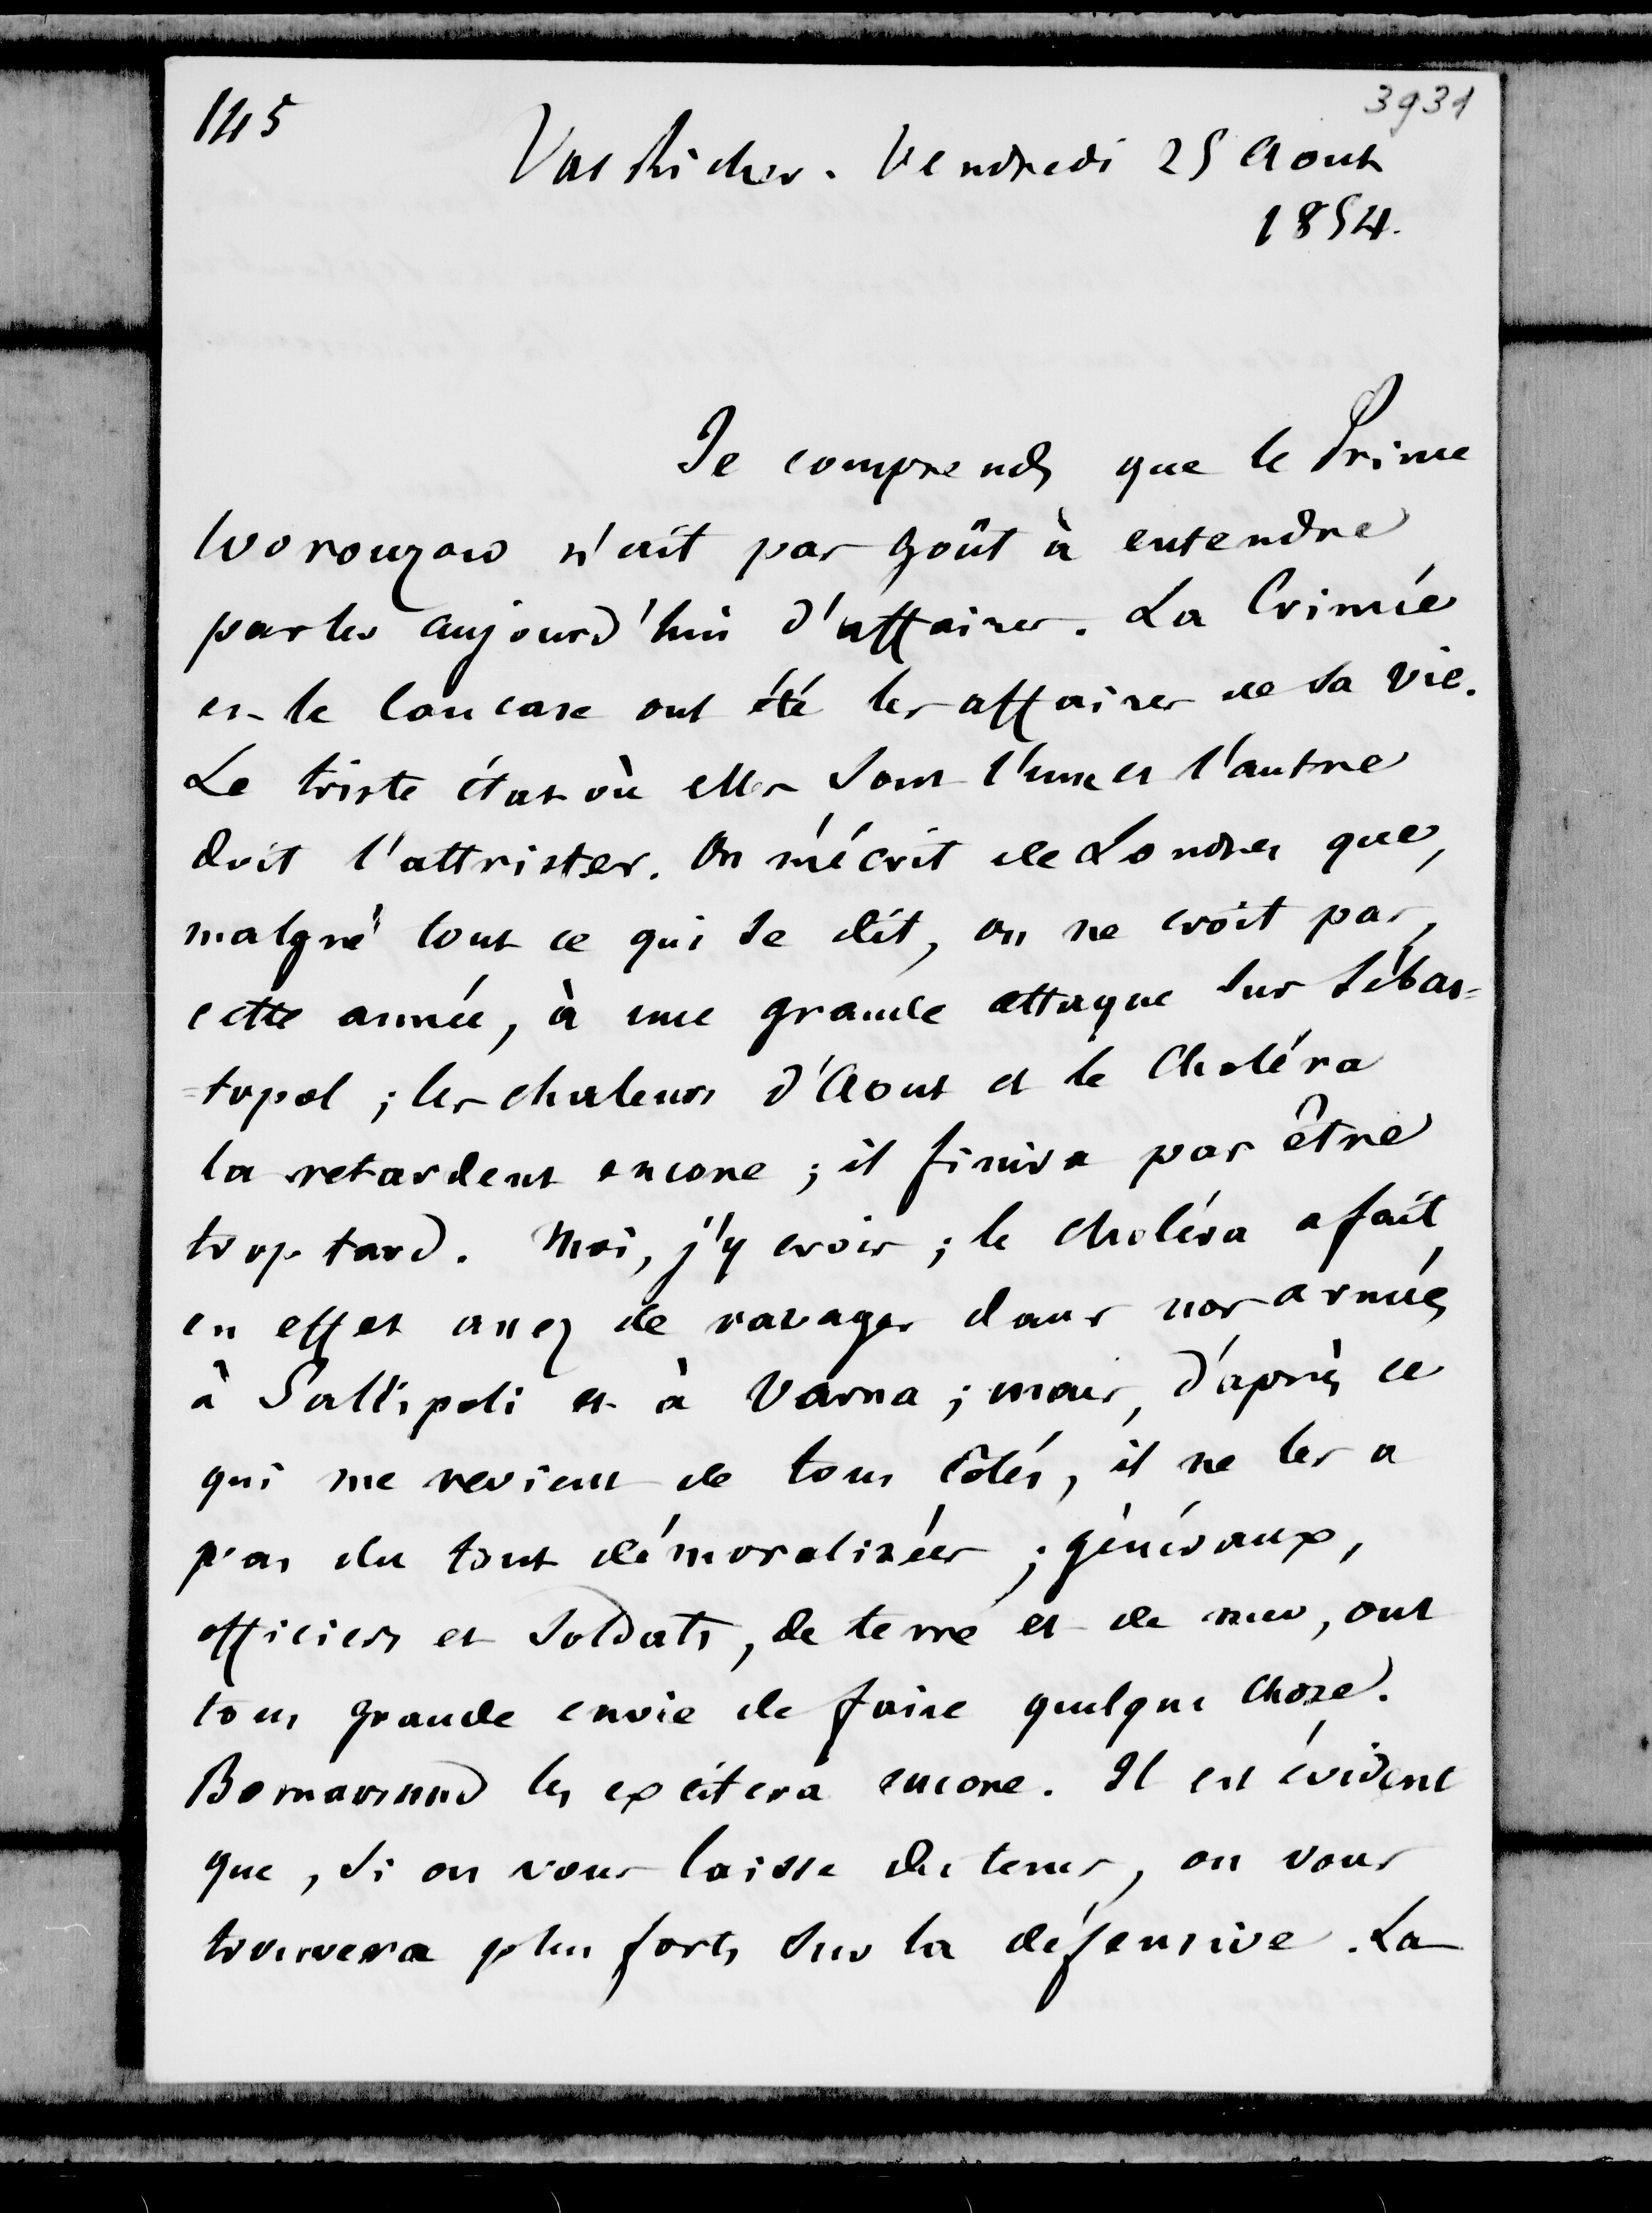 145
3931
Val Richer. Vendredi 25 Aout
1854.
Je comprends que le Prince
Woronzow n'ait pas goût à entendre
parler aujourd'hui d'affaires. La Crimée
et le Caucase ont été les affaires de sa vie.
Le triste état où elles sont l'une et l'autre
doit l'attrister. On m'écrit de Londres que,
malgré tout ce qui se dit, on ne croit pas,
cette année, à une grande attaque sur Sébas=
=topol ; les chaleurs d'Aout et le Choléra
la retardent encore ; il finira par être
trop tard. Moi, j'y crois ; le choléra a fait,
en effet assez de ravages dans nos armées
à Gallipoli et à Varna ; mais, d'après ce
qui me revient de tous côtés, il ne les a
pas du tout démoralisées ; généraux,
officiers et soldats, de terre et de mer, ont
tous grande envie de faire quelque chose.
Bomarsund les excitera encore. Il est évident
que, si on vous laisse du tems, on vous
trouvera plus forts sur la défensive. La